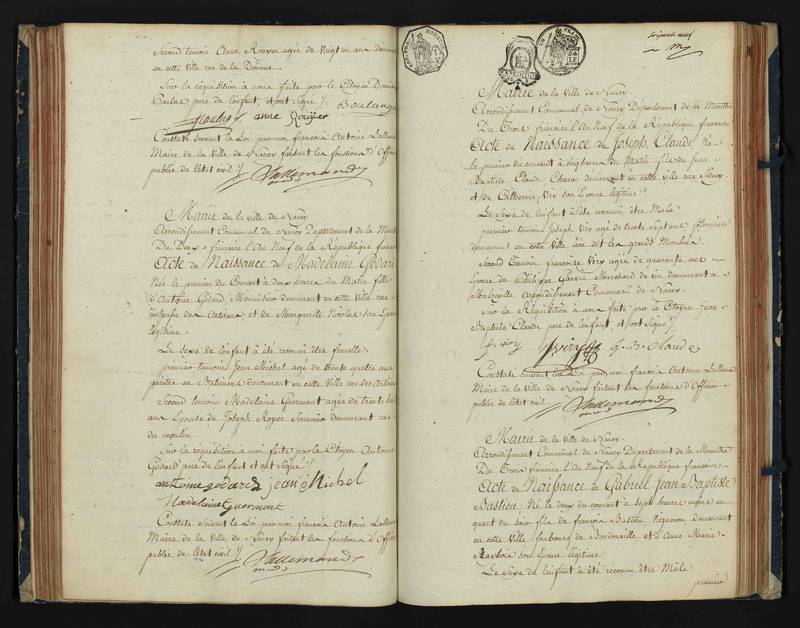 Second temoin Anne Rouyer agée de Vingt un aux demeurant
en cette Ville rue de la Douane
Sur la requisition a nous faite par le Citoyen
pere de lenfant, et ont signé
anne Rouyer
Constate suivant la Loi par moi françois Antoine Lallemand
Maire de la Ville de Nancy faisant les fonctions d'Officier
public de l'état civil
Lallemand
Mairie de la Ville de Nancy
Arrondissement Communal de Nancy Département de la Meurthe
Du Deux frimaire l'An Neuf de la République française
Acte de Naissance de Madelaine Godard
Née le premier du Courant à deux heures du Matin fille
d'Antoine Godard Menuisier demeurant en cette Ville rue
des Artisans, et de Marguerite Nicolas son Epouse
légitime
Le Sexe de l'enfant à été reconnu être femelle
premier temoin Jean Michel agé de trente quatre ans
peintre en Batiment demeurant en cette Ville rue des Artisans
Second temoin Madelaine Guermont agée de trente
ans Epouse de Joseph Royer demeurant rue
du moulin
Sur la requisition a moi faite par le Citoyen Antoine
Godard pere de l'enfant et ont signé
antoine godard jean Michel
Madeleine Guermont
Constate suivant la Loi par moi francois Antoine Lallemand
Maire de la Ville de Nancy faisant les fonctions d'Officier
public de l'état civil
Lallemand
Mairie de la Ville de Nancy
Arrondissement Communal de Nancy Departement de la Meurthe
Du Trois frimaire l'An Neuf de la République francaise
Acte de Naissance de Joseph Claude Né
le premier du courant à cinq heures du Matin fils de Jean
Baptiste Claude demeurant en cette ville rue
et de Catherine Viry son Epouse légitime
Le Sexe de l'enfant à été reconnu être Male
premier temoin Joseph Viry agé de trente Sept ans
demeurant en cette Ville lieu dit les grands Moulins
Second Temoin françoise Viry agée de quarante ans
Epouse de Philippe Marchand de vin demeurant à
Malzeville arrondissement Communal de Nancy
Sur la Réquisition a nous faite par le Citoyen Jean
Baptiste Claude pere de l'enfant, et ont signé
f viry J. B. Claude
Constate suivant la Loi par moi francois Antoine Lallemand
Maire de la Ville de Nancy faisant les fonctions d'Officier
public de l'etat civil
Lallemand
Mairie de la Ville de Nancy
Arrondissement Communal de Nancy Departement de la Meurthe
Du Trois frimaire l'An Neuf de la République francaise
Acte de Naissance de Gabriel Jean Baptiste
Bastien Né le deux du courant à sept heures moins un
quart du soir fils de francois Bastien Vigneron demeurant
en cette ville faubourg de Boudonville et d'Anne Marie
son Epouse légitime
Le Sexe de l'enfant à été reconnu être Male
premier